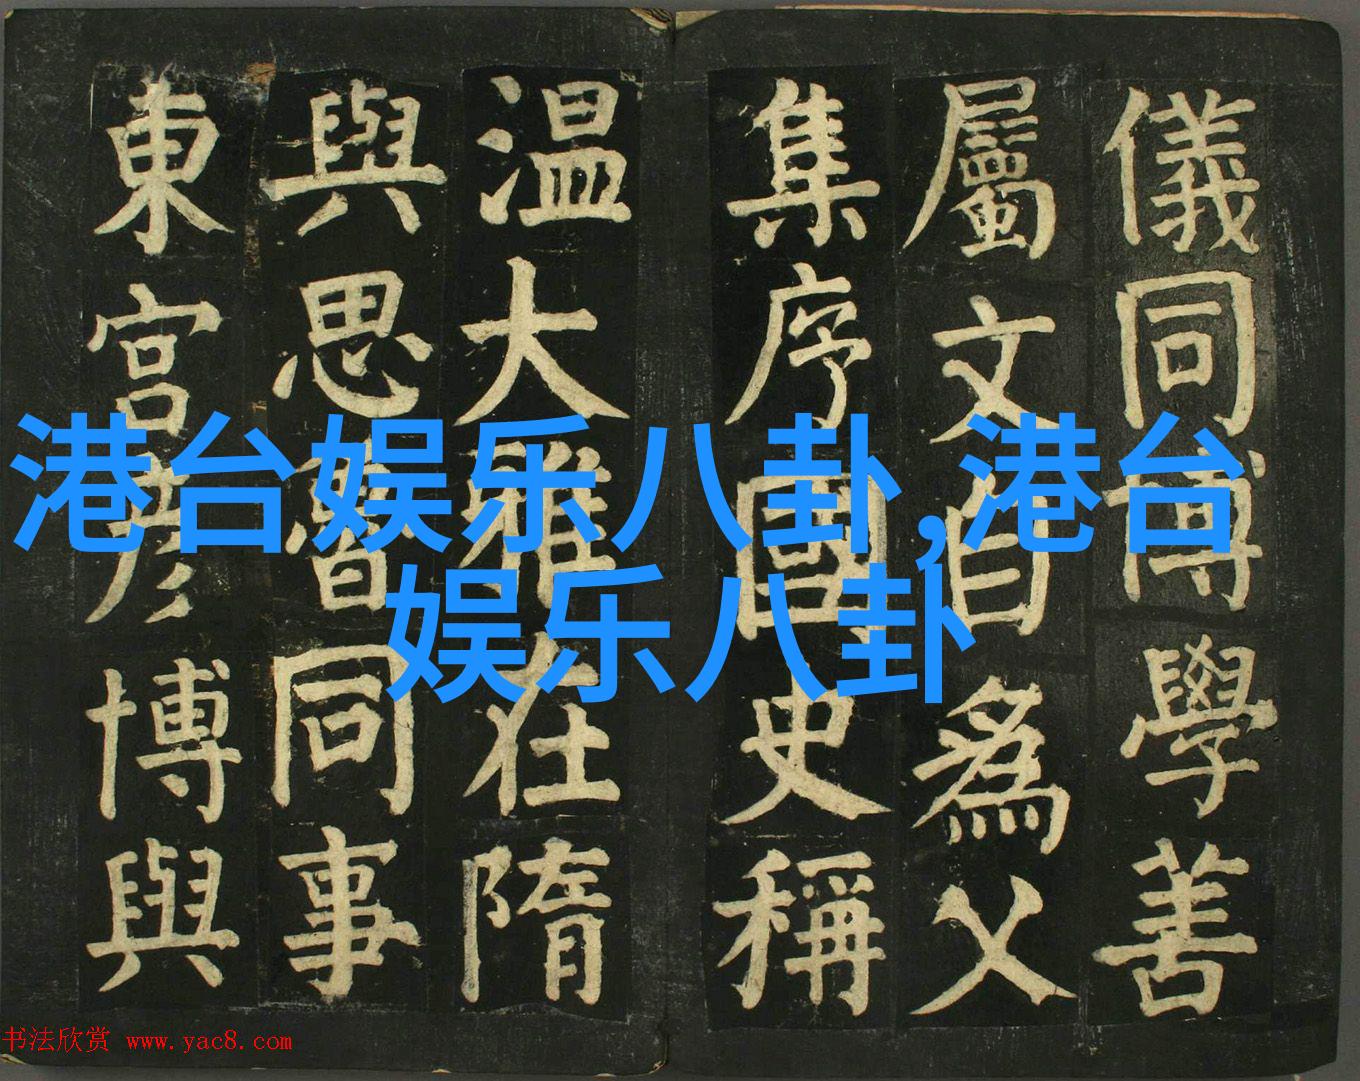 儀同博學善
屬文自爲父
集序國史稱
温大雅在隋
與思魯同事
東宮彦博與
港台娱乐八卦,港台
娱乐八卦
书法欣赏 www.yac8.com